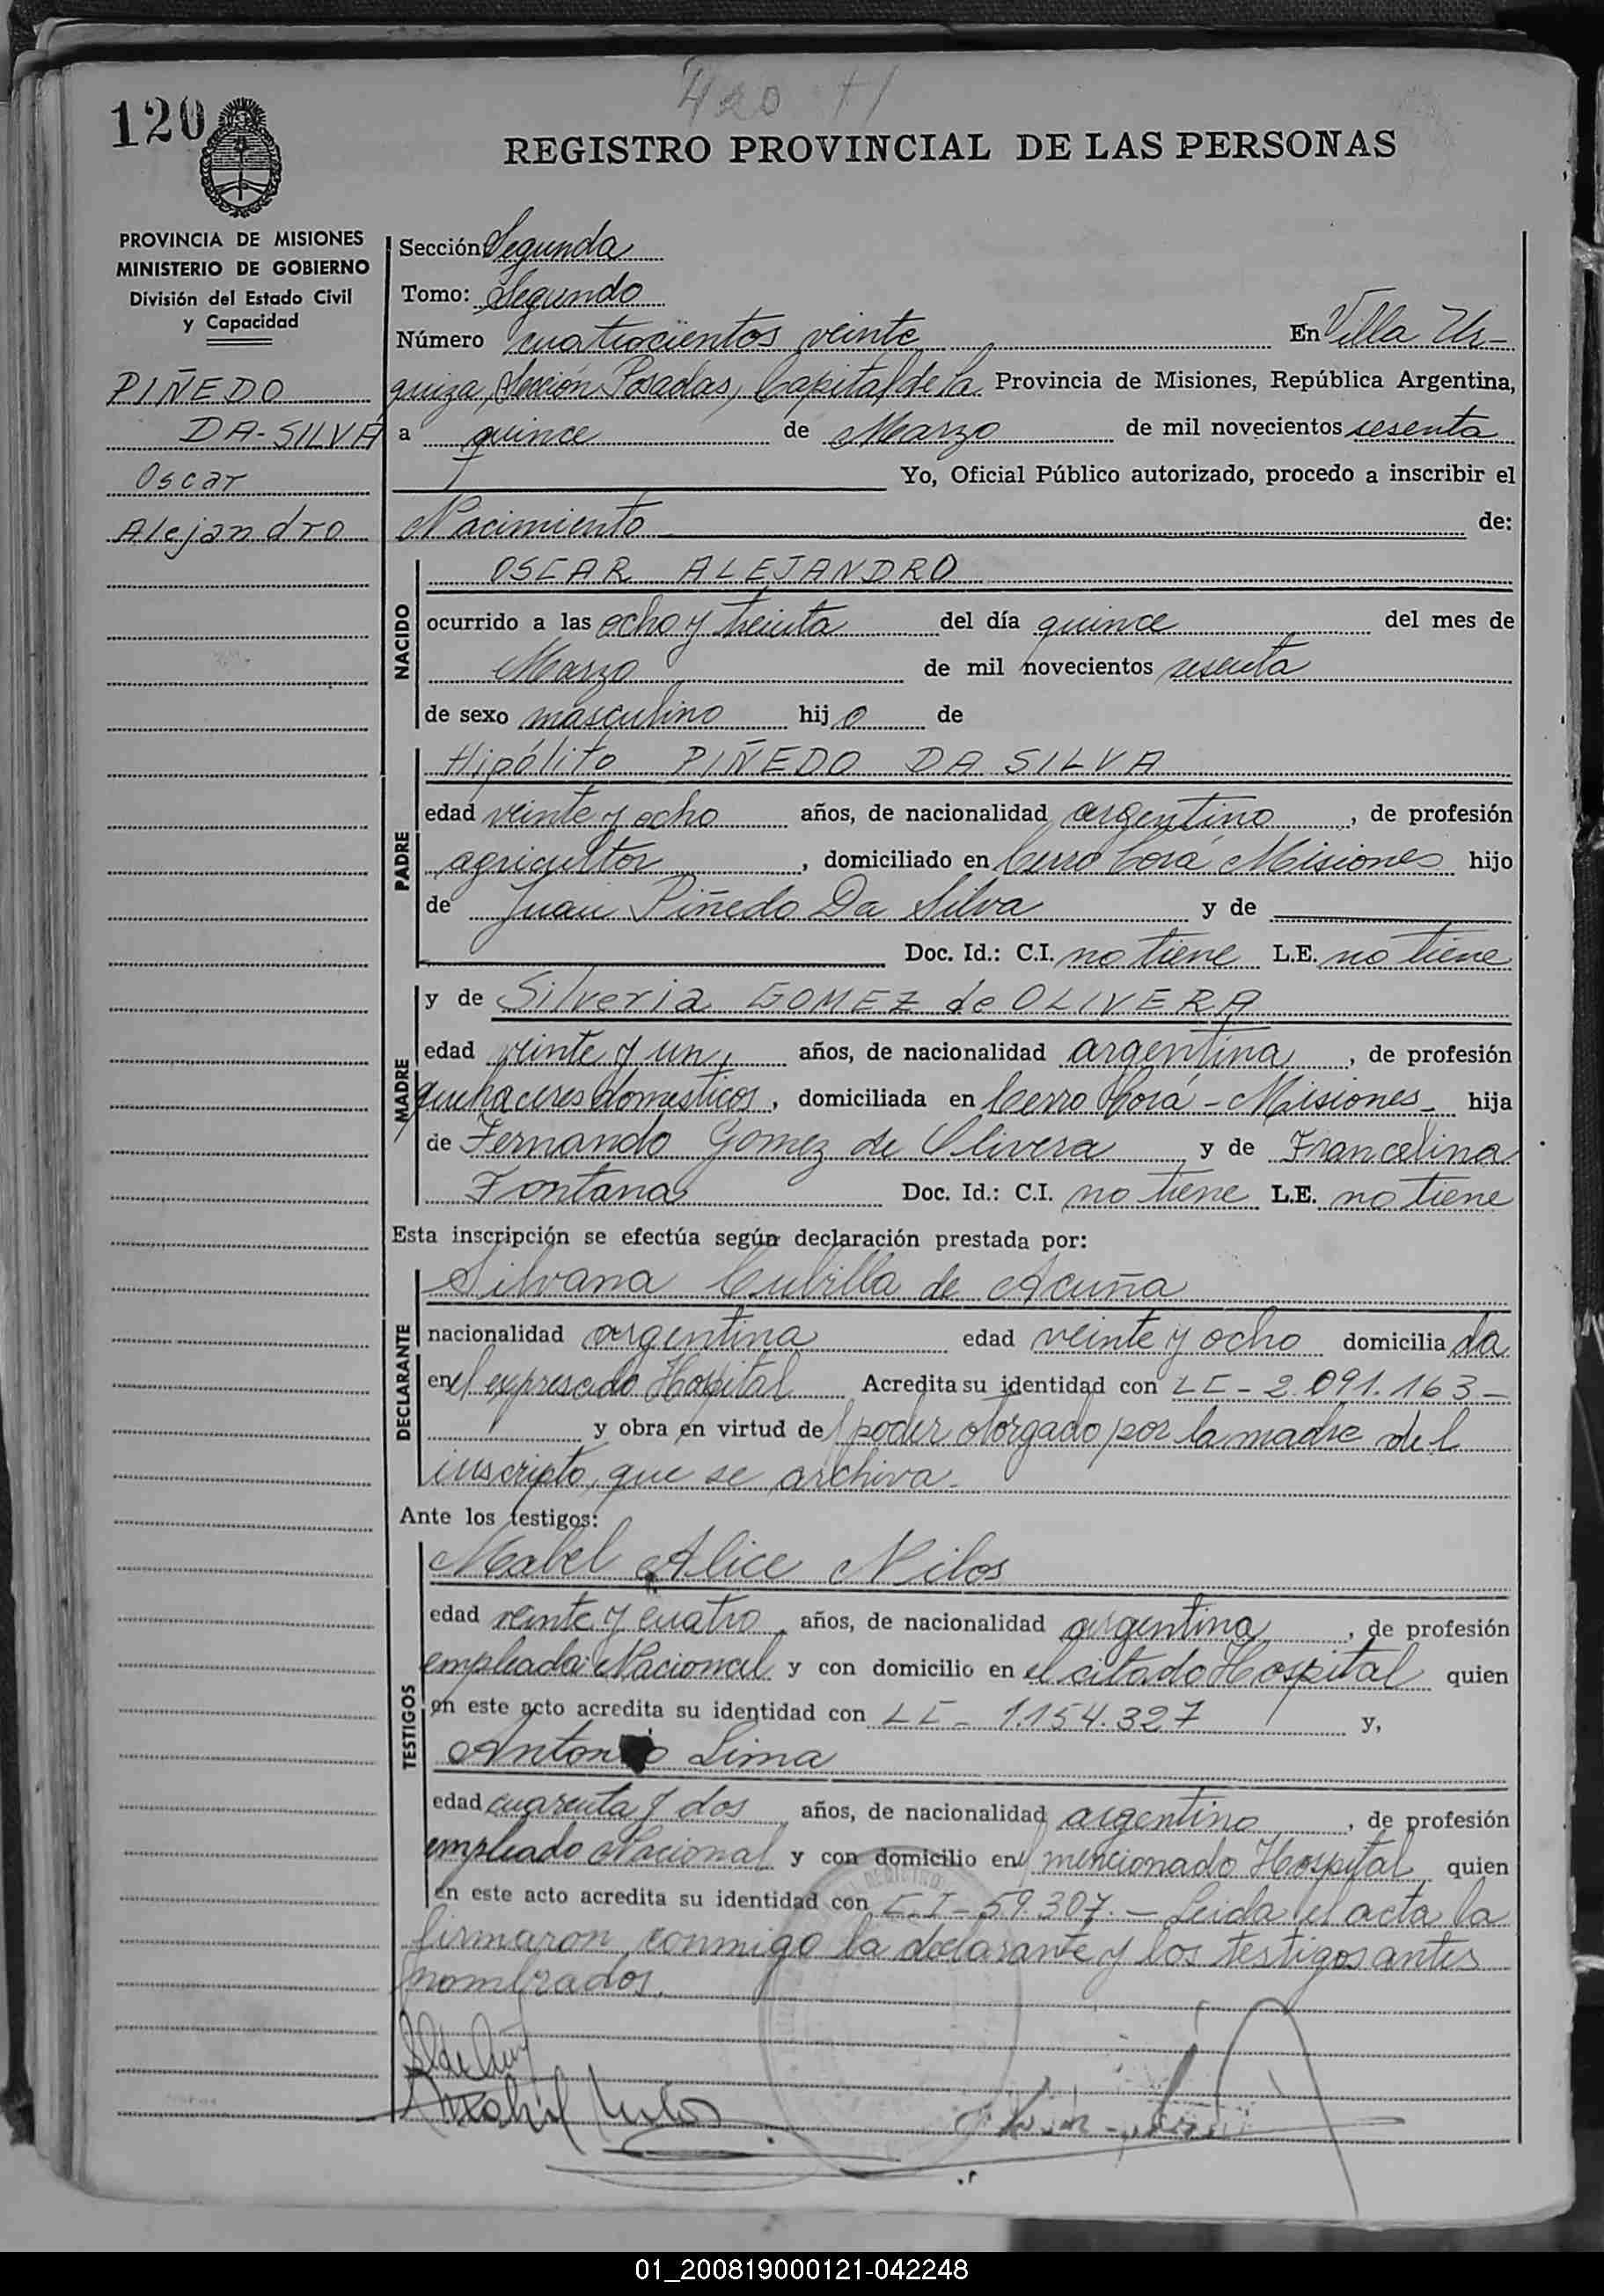 420
120
REGISTRO PROVINCIAL DE LAS PERSONAS
PROVINCIA DE MISIONES
MINISTERIO DE GOBIERNO
División del Estado Civil
y Capacidad
PIÑEDO
DA-SILVA
Oscar
Alejandro
Sección Segunda
Tomo: Segundo
Número cuatrocientos veinte En Villa Ur-
quiza, Sección Posadas, Capital de la Provincia de Misiones, República Argentina,
a quince de Marzo de mil novecientos sesenta
Yo, Oficial Público autorizado, procedo a inscribir el
Nacimiento de:
NACIDO
OSCAR ALEJANDRO
ocurrido a las ocho y treinta del día quince del mes de
Marzo de mil novecientos sesenta
de sexo masculino hijo de
PADRE
Hipólito PIÑEDO DA SILVA
edad veinte y ocho años, de nacionalidad argentino, de profesión
agricultor, domiciliado en Cerro Corá Misiones hijo
de Juan Piñedo Da Silva y de
Doc. Id.: C.I. no tiene L.E. no tiene
MADRE
y de Silveria GOMEZ de OLIVERA
edad veinte y un, años, de nacionalidad argentina, de profesión
quehaceres domesticos, domiciliada en Cerro Corá - Misiones - hija
de Fernando Gomez de Olivera y de Francelina
Fontana Doc. Id.: C.I. no tiene L.E. no tiene
Esta inscripción se efectúa según declaración prestada por:
DECLARANTE
Silvana Cubilla de Acuña
nacionalidad argentina edad veinte y ocho domiciliada
en el expresado Hospital Acredita su identidad con LC - 2.091.163 -
y obra en virtud del poder otorgado por la madre del
inscripto, que se archiva.
Ante los testigos:
TESTIGOS
Mabel Alice Nilos
edad veinte y cuatro años, de nacionalidad argentina, de profesión
empleada Nacional y con domicilio en el citado Hospital quien
en este acto acredita su identidad con LC - 1.154.327 y,
Antonio Lima
edad cuarenta y dos años, de nacionalidad argentino, de profesión
empleado Nacional y con domicilio en el mencionado Hospital quien
en este acto acredita su identidad con C.I - 59.307. - Leida el acta la
firmaron conmigo la declarante y los testigos antes
nombrados.
01_200819000121-042248